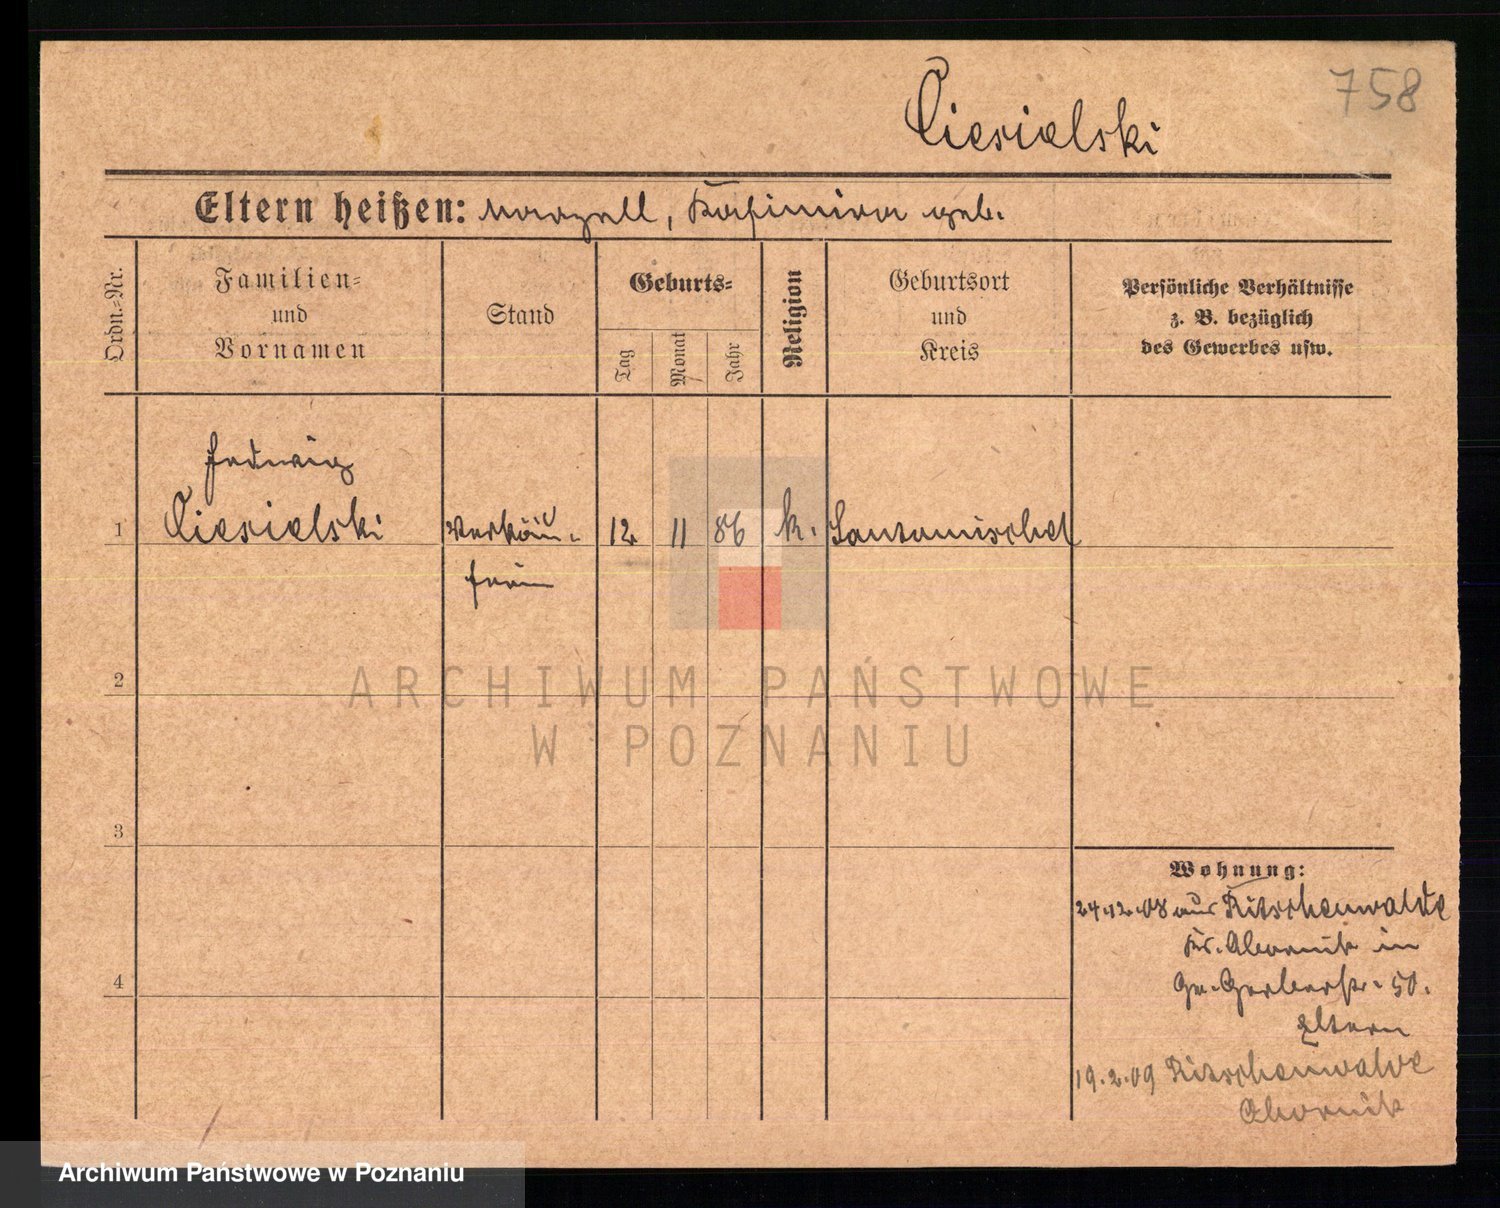 758
Ciesielski
Eltern heißen: Marzell, Kasimira geb.
Ordn.=Nr.
Familien=
und
Vornamen
Stand
Geburts=
Tag
Monat
Jahr
Religion
Geburtsort
und
Kreis
Persönliche Verhältnisse
z. B. bezüglich
des Gewerbes usw.
Hedwig
1 Ciesielski Verkäu- 12 11 86 k. Santomischel
ferin
2
ARCHIWUM PAŃSTWOWE
W POZNANIU
3
Wohnung:
24.12.08 aus Ritschenwalde
Kr. Obornik in
Gr. Gerberstr. 50.
4
Eltern
19.2.09 Ritschenwalde
Obornik
Archiwum Państwowe w Poznaniu